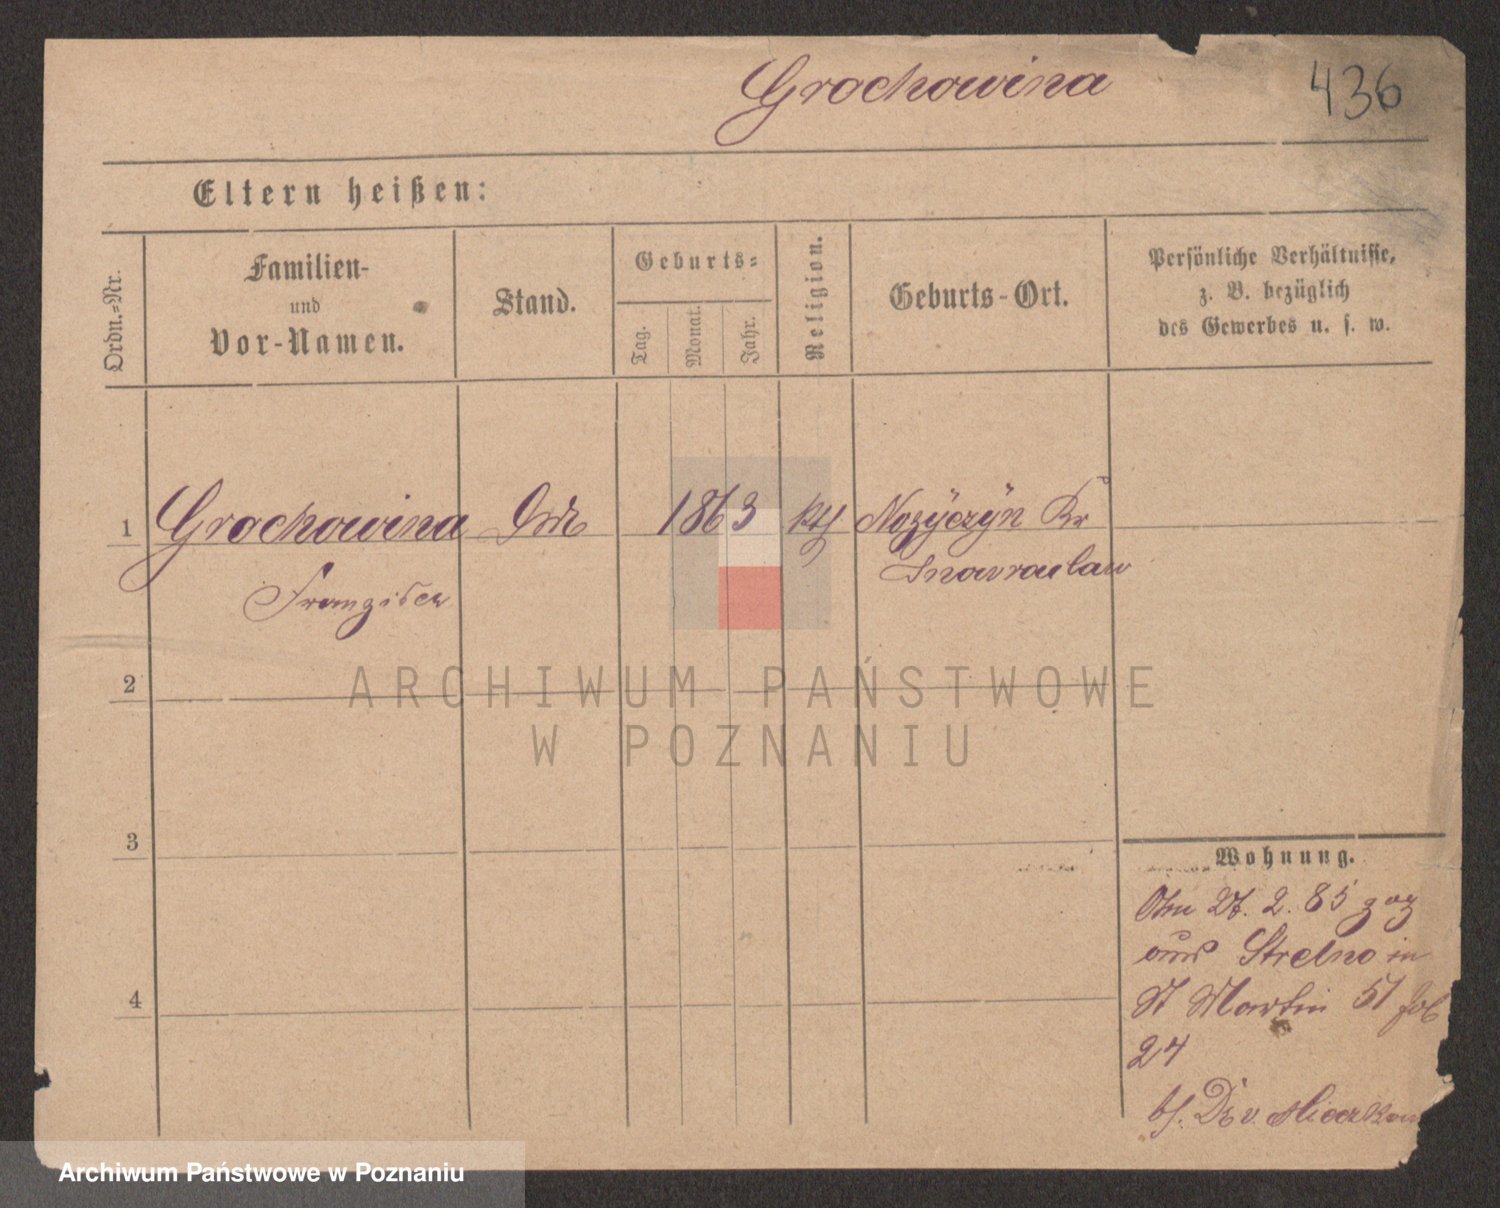 Grochowina
436
Eltern heißen:
Ordn.-Nr.
Familien-
und
Vor-Namen.
Stand.
Geburts-
Tag.
Monat.
Jahr.
Religion.
Geburts-Ort.
Persönliche Verhältnisse,
z. B. bezüglich
des Gewerbes u. s. w.
1 Grochowina 1863 kth Nozÿczÿn Kr
Inowraclaw
2
ARCHIWUM PAŃSTWOWE
W POZNANIU
3
4
Wohnung.
27. 2. 85 zog
aus Strelno in
St Martin 51
24
bf. Dr v.
Archiwum Państwowe w Poznaniu